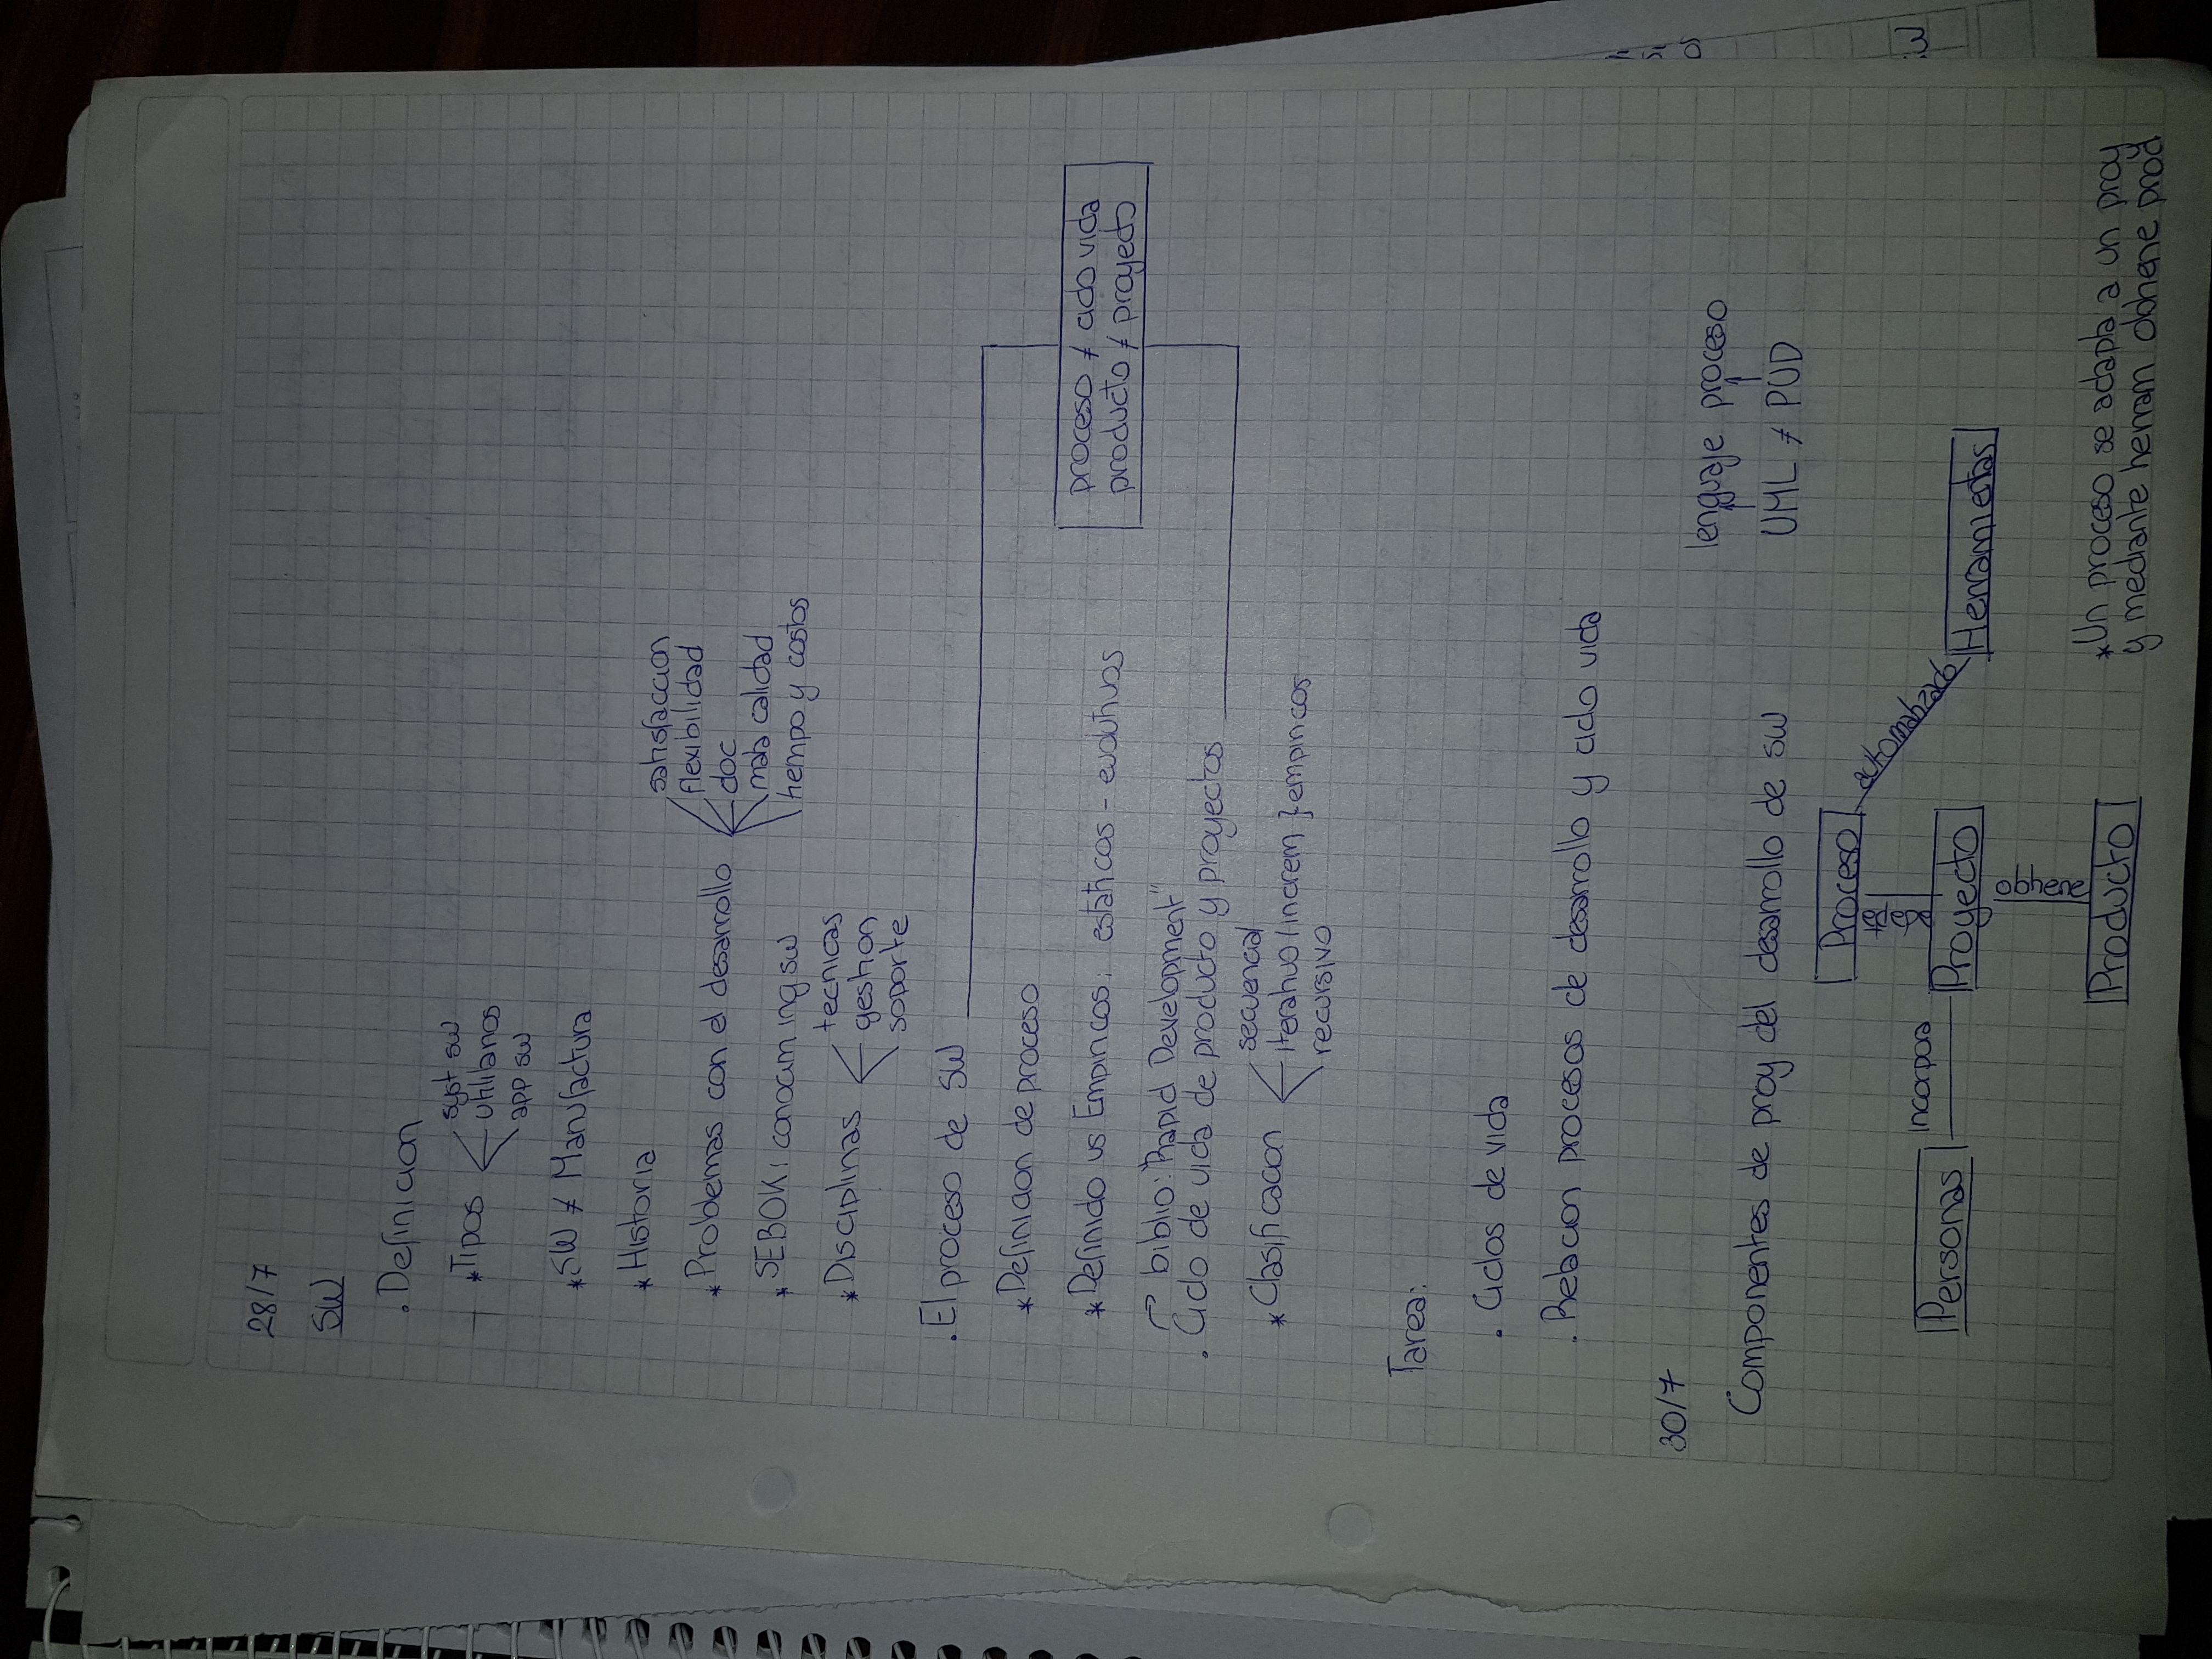 28/7
SW
. Definicion
* Tipos
syst sw
utilitarios
app sw
* SW ≠ Manufactura
* Historia
* Problemas con el desarrollo
satisfaccion
flexibilidad
doc
mala calidad
tiempo y costos
* SEBOK: conocim ing sw
* Disciplinas
tecnicas
gestion
soporte
. El proceso de SW
* Definicion de proceso
* Definido vs Empiricos: estaticos - evolutivos
proceso ≠ ciclo vida
producto ≠ proyecto
biblio: "Rapid Development"
. Ciclo de vida de producto y proyectos
* Clasificacion
secuencial
iterativo / increm } empiricos
recursivo
Tarea:
. Ciclos de vida
. Relacion procesos de desarrollo y ciclo vida
30/7
Componentes de proy del desarrollo de sw
lenguaje proceso
UML ≠ PUD
Proceso
adapta
automatizado
Personas
incorpora
Proyecto
Herramientas
obtiene
Producto
* Un proceso se adapta a un proy
y mediante herram obtiene prod